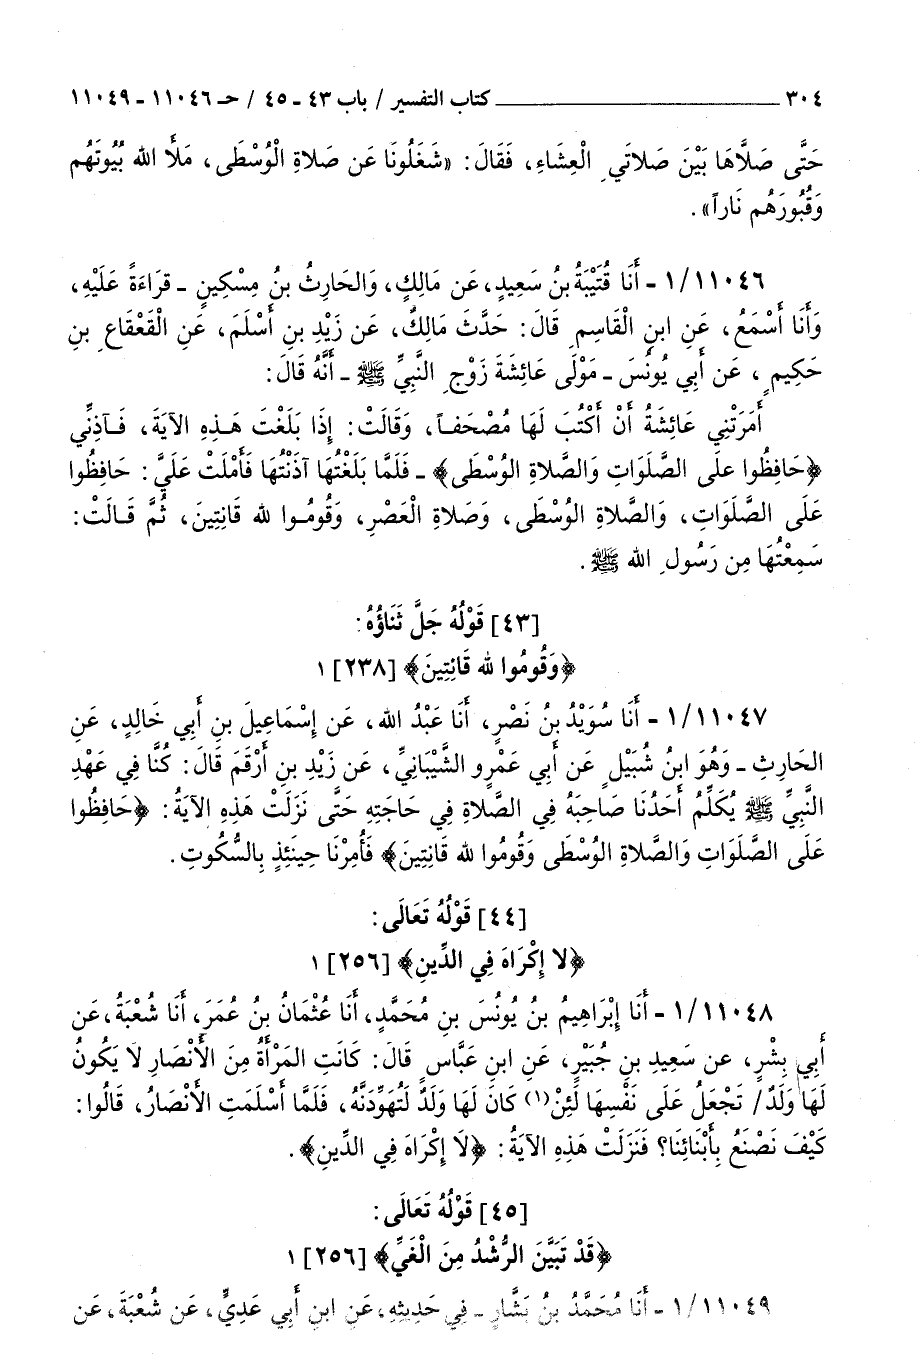 ٣٠٤ ــــــــــــ كتاب التفسير / باب ٤٣ ـ ٤٥ / حـ ١١٠٤٦ ـ ١١٠٤٩
حَتَّى صَلَّاهَا بَيْنَ صَلاتَيِ الْعِشَاءِ، فَقَالَ: «شَغَلُونَا عَن صَلاةِ الْوُسْطَى، مَلأَ اللهُ بُيُوتَهُم
وَقُبُورَهُم نَاراً».
١/١١٠٤٦ ـ أَنَا قُتَيْبَةُ بنُ سَعِيدٍ، عَن مَالِكٍ، وَالحَارِثُ بنُ مِسْكِينٍ ـ قرَاءَةً عَلَيْهِ،
وَأَنَا أَسْمَعُ، عَنِ ابنِ الْقَاسِمِ قَالَ: حَدَّثَ مَالِكٌ، عَن زَيْدِ بنِ أَسْلَمَ، عَنِ الْقَعْقَاعِ بنِ
حَكِيمٍ، عَن أَبِي يُونُسَ ـ مَوْلَى عَائِشَةَ زَوْجِ النَّبِيِّ ﷺ ـ أَنَّهُ قَالَ:
أَمَرَتْنِي عَائِشَةُ أَنْ أَكْتُبَ لَهَا مُصْحَفاً، وَقَالَتْ: إِذَا بَلَغْتَ هَذِهِ الآيَةَ، فَآذِنِّي
﴿حَافِظُوا عَلَى الصَّلَوَاتِ وَالصَّلاةِ الوُسْطَى﴾ ـ فَلَمَّا بَلَغْتُهَا آذَنْتُهَا فَأَمْلَتْ عَلَيَّ: حَافِظُوا
عَلَى الصَّلَوَاتِ، وَالصَّلاةِ الوُسْطَى، وَصَلاةِ الْعَصْرِ، وَقُومُوا للهِ قَانِتِينَ، ثُمَّ قَالَتْ:
سَمِعْتُهَا مِن رَسُولِ اللهِ ﷺ.
[٤٣] قَوْلُهُ جَلَّ ثَنَاؤُهُ:
﴿وَقُومُوا للهِ قَانِتِينَ﴾ [٢٣٨] ١
١/١١٠٤٧ ـ أَنَا سُوَيْدُ بنُ نَصْرٍ، أَنَا عَبْدُ اللهِ، عَن إِسْمَاعِيلَ بنِ أَبِي خَالِدٍ، عَنِ
الحَارِثِ ـ وَهُوَ ابنُ شُبَيْلٍ عَن أَبِي عَمْرٍو الشَّيْبَانِيِّ، عَن زَيْدِ بنِ أَرْقَمَ قَالَ: كُنَّا فِي عَهْدِ
النَّبِيِّ ﷺ يُكَلِّمُ أَحَدُنَا صَاحِبَهُ فِي الصَّلاةِ فِي حَاجَتِهِ حَتَّى نَزَلَتْ هَذِهِ الآيَةُ: ﴿حَافِظُوا
عَلَى الصَّلَوَاتِ وَالصَّلاةِ الوُسْطَى وَقُومُوا للهِ قَانِتِينَ﴾ فَأُمِرْنَا حِينَئِذٍ بِالسُّكُوتِ.
[٤٤] قَوْلُهُ تَعَالَى:
﴿لا إِكْرَاهَ فِي الدِّينِ﴾ [٢٥٦] ١
١/١١٠٤٨ ـ أَنَا إِبْرَاهِيمُ بنُ يُونُسَ بنِ مُحَمَّدٍ، أَنَا عُثْمَانُ بنُ عُمَرَ، أَنَا شُعْبَةُ، عَن
أَبِي بِشْرٍ، عن سَعِيدِ بنِ جُبَيْرٍ، عَنِ ابنِ عَبَّاسٍ قَالَ: كَانَتِ المَرْأَةُ مِنَ الأَنْصَارِ لا يَكُونُ
لَهَا وَلَدٌ/ تَجْعَلُ عَلَى نَفْسِهَا لَئِنْ(١) كَانَ لَهَا وَلَدٌ لَتُهَوِّدَنَّهُ، فَلَمَّا أَسْلَمَتِ الأَنْصَارُ، قَالُوا:
كَيْفَ نَصْنَعُ بِأَبْنَائِنَا؟ فَنَزَلَتْ هَذِهِ الآيَةُ: ﴿لَا إِكْرَاهَ فِي الدِّينِ﴾.
[٤٥] قَوْلُهُ تَعَالَى:
﴿قَدْ تَبَيَّنَ الرُّشْدُ مِنَ الْغَيِّ﴾ [٢٥٦] ١
١/١١٠٤٩ ـ أَنَا مُحَمَّدُ بنُ بَشَّارٍ ـ فِي حَدِيثِهِ، عَنِ ابنِ أَبِي عَدِيٍّ، عَن شُعْبَةَ، عَن